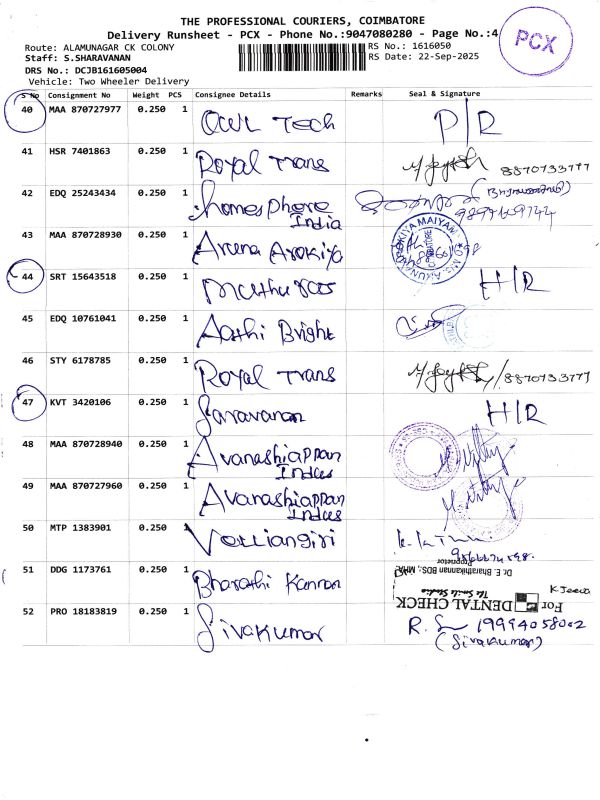 THE PROFESSIONAL COURIERS, COIMBATORE
Delivery Runsheet - PCX - Phone No.:9047080280 - Page No.:4
PCX
Route: ALAMUNAGAR CK COLONY
RS No.: 1616050
Staff: S.SHARAVANAN
RS Date: 22-Sep-2025
DRS No.: DCJB161605004
Vehicle: Two Wheeler Delivery
S No Consignment No Weight PCS Consignee Details Remarks Seal & Signature
40 MAA 870727977 0.250 1 OWL Tech P/R
41 HSR 7401863 0.250 1 Royal Trans 8870733777
42 EDQ 25243434 0.250 1 Homes Phone India
43 MAA 870728930 0.250 1 Aruna Arokiya
44 SRT 15643518 0.250 1 Muthu H/R
45 EDQ 10761041 0.250 1 Aathi Bright
46 STY 6178785 0.250 1 Royal Trans 8870733777
47 KVT 3420106 0.250 1 Saravanan H/R
48 MAA 870728940 0.250 1 Avanashiappan Indus
49 MAA 870727960 0.250 1 Avanashiappan Indus
50 MTP 1383901 0.250 1 Velliangiri
51 DDG 1173761 0.250 1 Bharathi Kannan
Proprietor
Dr. E. Bharathikannan BDS., MHA,
The Smile Studio
For DENTAL CHECK
K. Jeeva
52 PRO 18183819 0.250 1 Sivakumar R. S 19994058002
(Sivakumar)